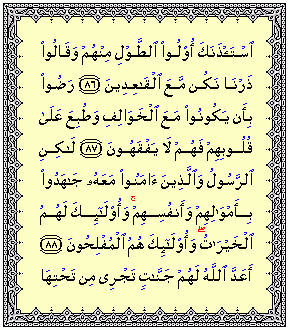 ٱسْتَـْٔذَنَكَ أُو۟لُوا۟ ٱلطَّوْلِ مِنْهُمْ وَقَالُوا۟
ذَرْنَا نَكُن مَّعَ ٱلْقَـٰعِدِينَ ﴿٨٦﴾ رَضُوا۟
بِأَن يَكُونُوا۟ مَعَ ٱلْخَوَالِفِ وَطُبِعَ عَلَىٰ
قُلُوبِهِمْ فَهُمْ لَا يَفْقَهُونَ ﴿٨٧﴾ لَـٰكِنِ
ٱلرَّسُولُ وَٱلَّذِينَ ءَامَنُوا۟ مَعَهُۥ جَـٰهَدُوا۟
بِأَمْوَٰلِهِمْ وَأَنفُسِهِمْ ۚ وَأُو۟لَـٰٓئِكَ لَهُمُ
ٱلْخَيْرَٰتُ ۖ وَأُو۟لَـٰٓئِكَ هُمُ ٱلْمُفْلِحُونَ ﴿٨٨﴾
أَعَدَّ ٱللَّهُ لَهُمْ جَنَّـٰتٍ تَجْرِى مِن تَحْتِهَا